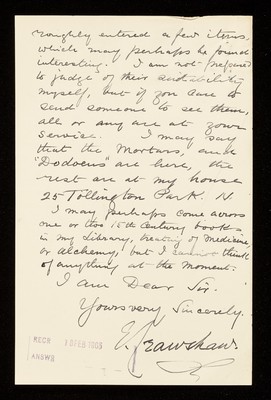 roughly entered a few items,
which may perhaps be found
interesting. I am not prepared
to judge of their suitability
myself, but if you care to
send someone to see them,
all or any are at your
service. I may say
that the Mortars, and
"Dodoens" are here, the
rest are at my house
25 Tollington Park. N
I may perhaps come across
one or two 15th Century books
in my Library, treating of medicine,
or Alchemy, but I cannot think
of anything at the moment.
I am Dear Sir.
Yours very Sincerely.
E. Crawshaw
RECD 10 FEB 1905
ANSWD